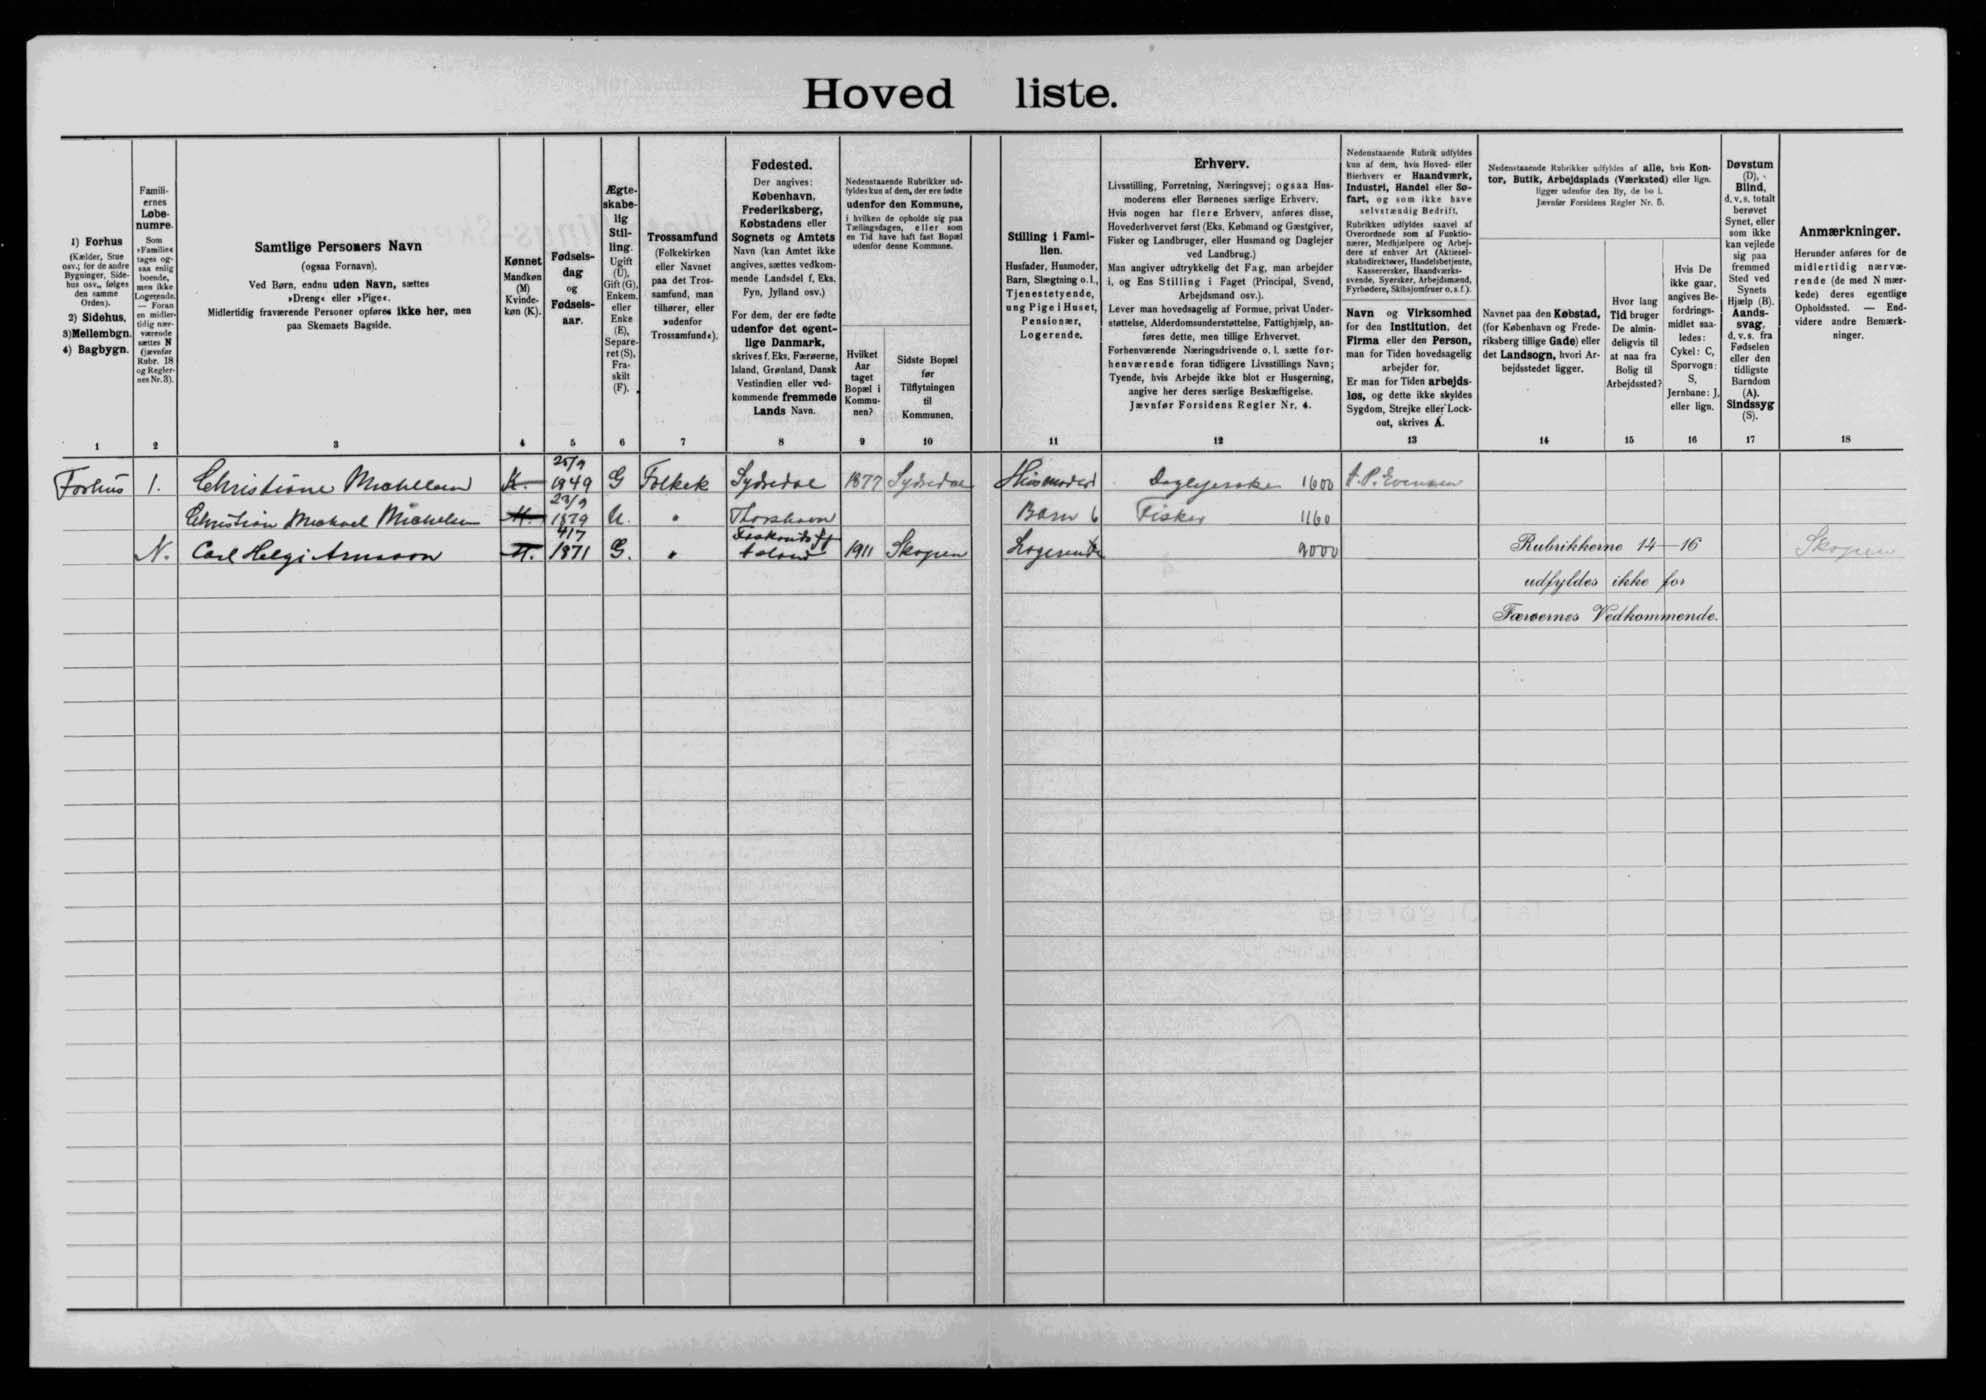 Hoved liste.
1) Forhus
(Kælder, Stue
osv.; for de andre
Bygninger, Side-
hus osv., følges
den samme
Orden).
2) Sidehus,
3)Mellembgn.
4) Bagbygn.
1
Famili-
ernes
Løbe-
numre.
Som
»Familie«
tages og-
saa enlig
boende,
men ikke
Logerende.
— Foran
en midler-
tidig nær-
værende
sættes N
(jævnfør
Rubr. 18
og Regler-
nes Nr. 3).
2
Samtlige Personers Navn
(ogsaa Fornavn).
Ved Børn, endnu uden Navn, sættes
»Dreng« eller »Pige«.
Midlertidig fraværende Personer opføres ikke her, men
paa Skemaets Bagside.
3
Kønnet
Mandkøn
(M)
Kvinde-
køn (K).
4
Fødsels-
dag
og
Fødsels-
aar.
5
Ægte-
skabe-
lig
Stil-
ling.
Ugift
(U),
Gift (G),
Enkem.
eller
Enke
(E),
Separe-
ret (S),
Fra-
skilt
(F).
6
Trossamfund
(Folkekirken
eller Navnet
paa det Tros-
samfund, man
tilhører, eller
»udenfor
Trossamfund«).
7
Fødested.
Der angives:
København,
Frederiksberg,
Købstadens eller
Sognets og Amtets
Navn (kan Amtet ikke
angives, sættes vedkom-
mende Landsdel f. Eks.
Fyn, Jylland osv.)
For dem, der ere fødte
udenfor det egent-
lige Danmark,
skrives f. Eks. Færøerne,
Island, Grønland, Dansk
Vestindien eller ved-
kommende fremmede
Lands Navn.
8
Nedenstaaende Rubrikker ud-
fyldes kun af dem, der ere fødte
udenfor den Kommune,
i hvilken de opholde sig paa
Tællingsdagen, eller som
en Tid have haft fast Bopæl
udenfor denne Kommune.
Hvilket
Aar
taget
Bopæl i
Kommu-
nen?
9
Sidste Bopæl
før
Tilflytningen
til
Kommunen.
10
Stilling i Fami-
lien.
Husfader, Husmoder,
Barn, Slægtning o. l.,
Tjenestetyende,
ung Pige i Huset,
Pensionær,
Logerende.
11
Erhverv.
Livsstilling, Forretning, Næringsvej; ogsaa Hus-
moderens eller Børnenes særlige Erhverv.
Hvis nogen har flere Erhverv, anføres disse,
Hovederhvervet først (Eks. Købmand og Gæstgiver,
Fisker og Landbruger, eller Husmand og Daglejer
ved Landbrug.)
Man angiver udtrykkelig det Fag, man arbejder
i, og Ens Stilling i Faget (Principal, Svend,
Arbejdsmand osv.).
Lever man hovedsagelig af Formue, privat Under-
støttelse, Alderdomsunderstøttelse, Fattighjælp, an-
føres dette, men tillige Erhvervet.
Forhenværende Næringsdrivende o. l. sætte for-
henværende foran tidligere Livsstillings Navn;
Tyende, hvis Arbejde ikke blot er Husgerning,
angive her deres særlige Beskæftigelse.
Jævnfør Forsidens Regler Nr. 4.
12
Nedenstaaende Rubrik udfyldes
kun af dem, hvis Hoved- eller
Bierhverv er Haandværk,
Industri, Handel eller Sø-
fart, og som ikke have
selvstændig Bedrift.
Rubrikken udfyldes saavel af
Overordnede som af Funktio-
nærer, Medhjælpere og Arbej-
dere af enhver Art (Aktiesel-
skabsdirektører, Handelsbetjente,
Kasserersker, Haandværks-
svende, Syersker, Arbejdsmænd,
Fyrbødere, Skibsjomfruer o. s. f.).
Navn og Virksomhed
for den Institution, det
Firma eller den Person,
man for Tiden hovedsagelig
arbejder for.
Er man for Tiden arbejds-
løs, og dette ikke skyldes
Sygdom, Strejke eller Lock-
out, skrives A.
13
Nedenstaaende Rubrikker udfyldes af alle, hvis Kon-
tor, Butik, Arbejdsplads (Værksted) eller lign.
ligger udenfor den By, de bo i.
Jævnfør Forsidens Regler Nr. 5.
Navnet paa den Købstad,
(for København og Frede-
riksberg tillige Gade) eller
det Landsogn, hvori Ar-
bejdsstedet ligger.
14
Hvor lang
Tid bruger
De almin-
deligvis til
at naa fra
Bolig til
Arbejdssted?
15
Hvis De
ikke gaar,
angives Be-
fordrings-
midlet saa-
ledes:
Cykel: C,
Sporvogn:
S,
Jernbane: J,
eller lign.
16
Døvstum
(D),
Blind,
d. v. s. totalt
berøvet
Synet, eller
som ikke
kan vejlede
sig paa
fremmed
Sted ved
Synets
Hjælp (B).
Aands-
svag,
d. v. s. fra
Fødselen
eller den
tidligste
Barndom
(A).
Sindssyg
(S).
17
Anmærkninger.
Herunder anføres for de
midlertidig nærvæ-
rende (de med N mær-
kede) deres egentlige
Opholdssted. — End-
videre andre Bemærk-
ninger.
18
Forhus 1. Christiane Michelsen K. 25/9 1849 G Folkek Sydredal 1877 Sydredal Husmoder Daglejerske 1600
Christian Michael Michelsen M. 23/9 1879 U. " Thorshavn Barn 6 Fisker 1160
N. Carl Helgi Arnason M. 4/7 1871 G. " Island 1911 Skopen Logerende 2000 Skopen
Rubrikkerne 14—16
udfyldes ikke for
Færøernes Vedkommende.